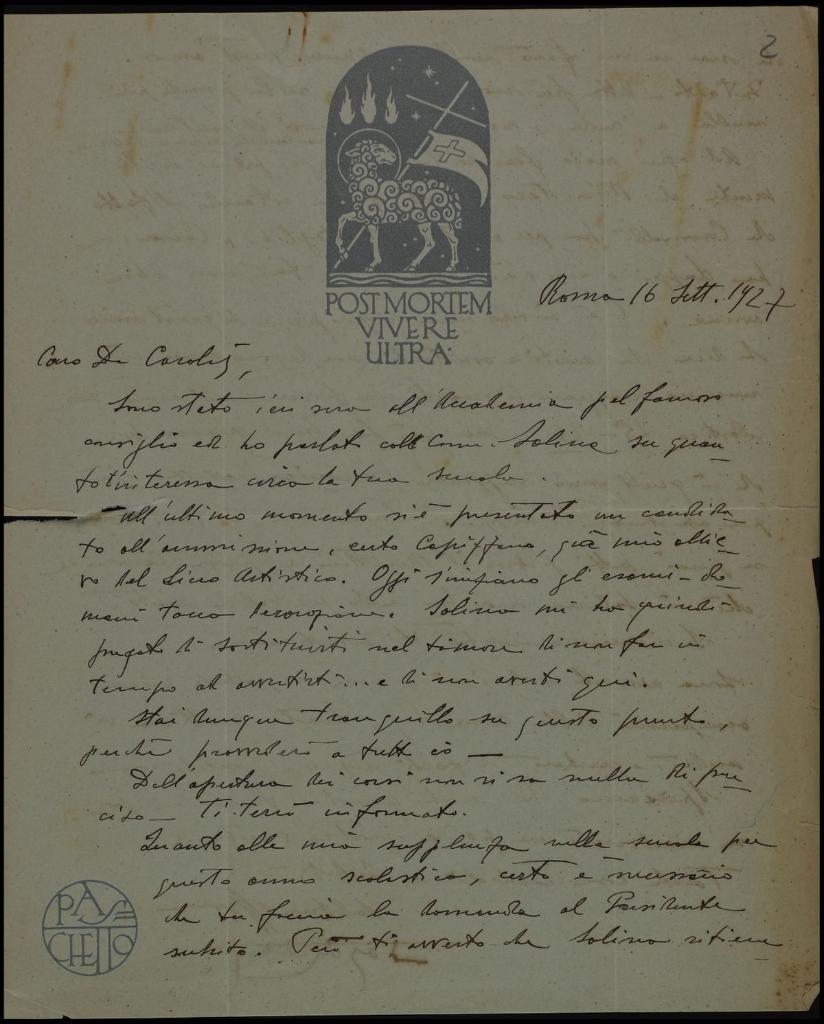 2
POST MORTEM
VIVERE
ULTRA·
Roma 16 Sett. 1927
Caro De Carolis,
Sono stato ieri sera all'Accademia pel famoso
consiglio ed ho parlato col Comm. Solina su quan-
to t'interessa circa la tua scuola.
All'ultimo momento si è presentato un candida-
to all'ammissione, certo Capizzano, già mio allie-
vo del Liceo Artistico. Oggi s'iniziano gli esami – do-
mani tocca decorazione. Solina mi ha quindi
pregato di sostituirti nel timore di non far in
tempo ad avvertirti... e di non averti qui.
Stai dunque tranquillo su questo punto,
perché provvederò a tutto io —
Dell'apertura dei corsi non si sa nulla di pre-
ciso – Ti terrò informato.
Quanto alla mia supplenza nella scuola per
questo anno scolastico, certo è necessario
che tu faccia la domanda al Presidente
subito. Però ti avverto che Solina ritiene
PASCHETTO